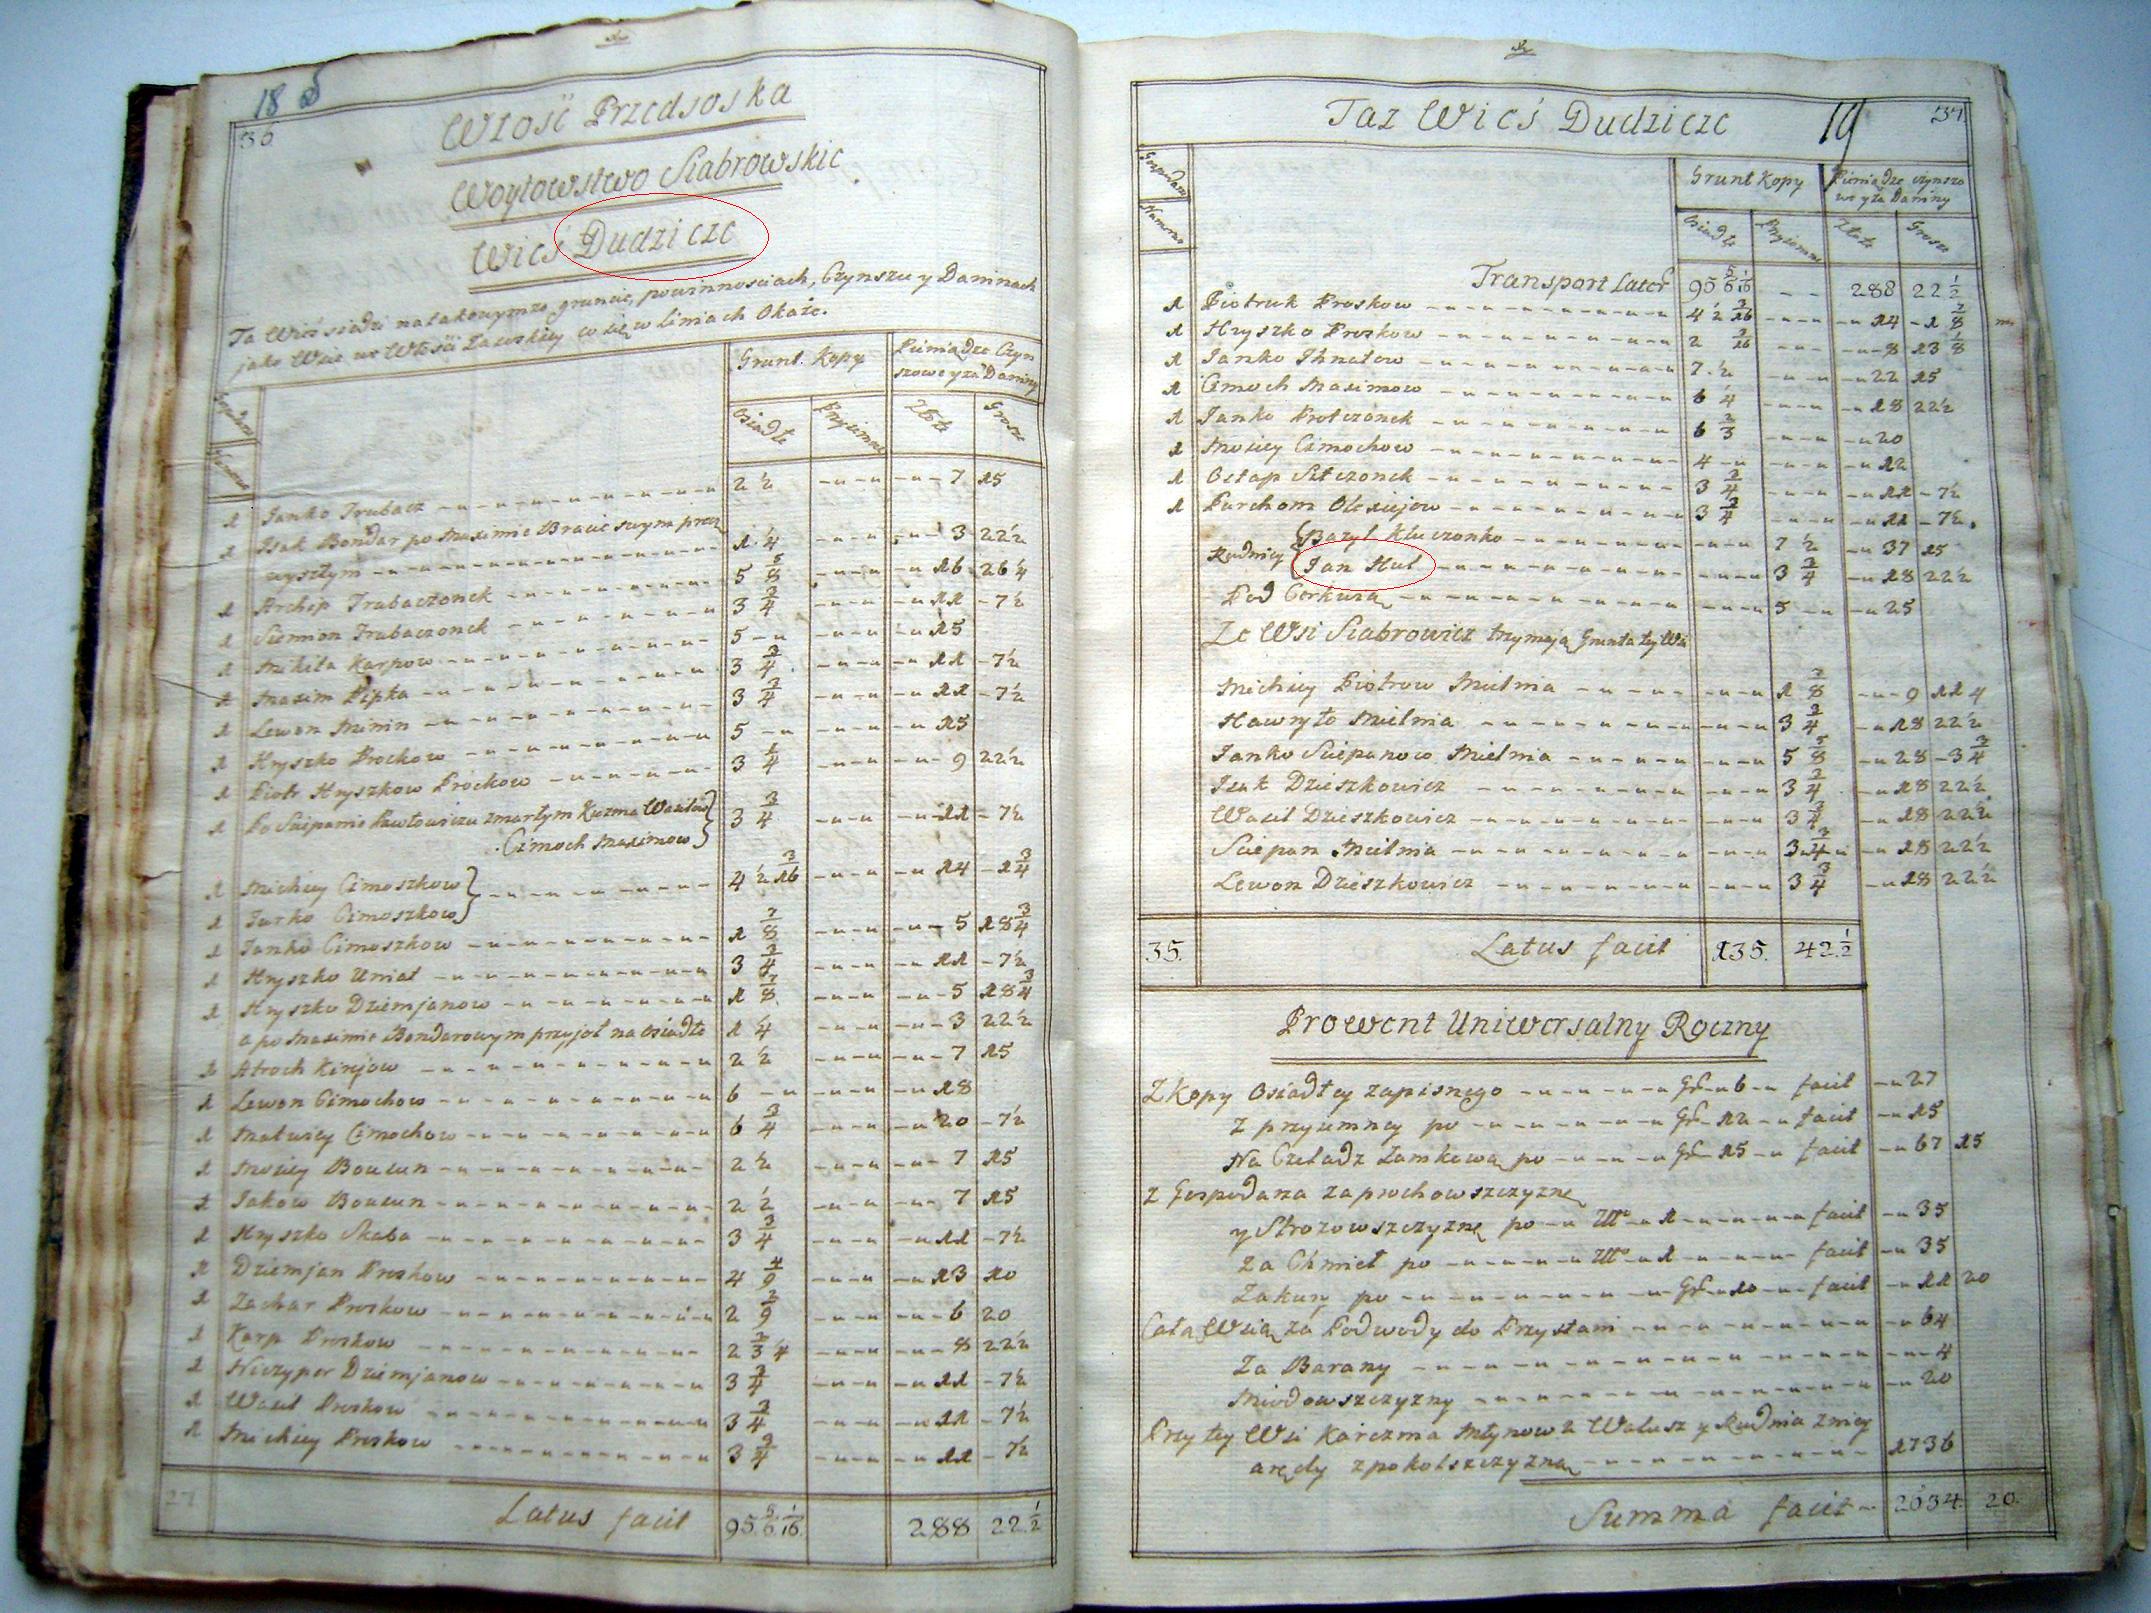 18
36
Włość Przedsoska
Woytowstwo Siabrowskie
Wieś Dudzicze
Ta Wieś siedzi na takowymże gruncie, powinnościach, Czynszu y Daninach
jako Wsie we Włości Zawskiey co się w Liniach Okaże.
Grunt. Kopy
Pieniądze Czyn
szowe y za Daniny
Osiadłe Przyiemne Złote Grosze
1 Janko Trubacz 2 ½ 7 15
1 Isak Bondar po Maximie Bracie swym przez
wyszłym 1 ¼ 3 22½
1 Archip Trubaczonek 5 5/8 16 26¼
1 Siemion Trubaczonek 3 3/4 11 7½
1 Mikita Karpow 5 15
1 Maxim Pipka 3 3/4 11 7½
1 Lewon Minin 3 3/4 11 7½
1 Hryszko Prockow 5 15
1 Piotr Hryszkow Prockow 3 1/4 9 22½
1 Po Sciepanie Pawłowiczu zmarłym Kuzma Wasilow 3 3/4 11 7½
Cimoch Maximow
1 Michiey Cimoszkow 4 ½ 3/16 14 1 3/4
1 Jurko Cimoszkow
1 Janko Cimoszkow 1 7/8 5 18 3/4
1 Hryszko Uniat 3 3/4 11 7½
1 Hryszko Dziemjanow 1 7/8 5 18 3/4
a po Maximie Bondarowym przyjoł na osiadło 1 ¼ 3 22½
1 Atroch Kirejow 2 ½ 7 15
1 Lewon Cimochow 6 18
1 Matwiey Cimochow 6 3/4 20 7½
1 Mosiey Boulun 2 ½ 7 15
1 Jakow Boulun 2 ½ 7 15
1 Hryszko Skaba 3 3/4 11 7½
1 Dziemjan Proskow 4 4/9 13 10
1 Zachar Proskow 2 2/9 6 20
1 Karp Proskow 2 2/3 ¼ 8 22½
1 Niczyper Dziemjanow 3 3/4 11 7½
1 Wasil Proskow 3 3/4 11 7½
1 Michiey Proskow 3 3/4 11 7½
27 Latus facit 95 5/6 1/16 288 22 ½
19
37
Taż Wieś Dudzicze
Gospodarze
Numero
Grunt Kopy
Pieniądze czynszo
we y za Daniny
Osiadłe Przyiemne Złote Grosze
Transport Later 95 5/6 1/16 288 22 ½
1 Piotruk Proskow 4 ½ 3/16 14 1 7/8
1 Hryszko Proskow 2 3/16 8 13 1/8
1 Janko Ihnatow 7 ½ 22 15
1 Cimoch Maximow 6 ¼ 18 22½
1 Janko Protczonek 6 2/3 20
1 Mosiey Cimochow 4 12
1 Ostap Sitczonek 3 3/4 11 7½
1 Parchom Olexiejow 3 3/4 11 7½
Rudnicy Bazyl Kluczonko 7 ½ 37 15
Jan Hut 3 3/4 18 22½
Pod Cerkwią 5 25
Ze Wsi Siabrowicz trzymają Grunta tey Wsi
Michiey Piotrow Mielnia 1 7/8 9 11 4
Hawryło Mielnia 3 3/4 18 22½
Janko Sciepanow Mielnia 5 5/8 28 3 3/4
Isak Dzieszkowicz 3 3/4 18 22½
Wasil Dzieszkowicz 3 3/4 18 22½
Sciepan Mielnia 3 3/4 18 22½
Lewon Dzieszkowicz 3 3/4 18 22½
35. Latus facit 135. 42.½
Prowent Uniwersalny Roczny
Z Kopy Osiadłey zapisnego Gr 6 facit 27
Z przyiemney po Gr 12 facit 15
Na Czeladz Zamkową po Gr 15 facit 67 15
Z Gospodarza za prochowszczyznę
y Strożowszczyznę po Zło 1 facit 35
Za Chmiel po Zło 1 facit 35
Za kury po Gr 10 facit 11 20
Cała Wsią za Podwody do Przystani 64
Za Barany 4
Miodowszczyzny 20
Przy tey Wsi Karczma Młynow 2 Walusz y Rudnia z niey
arędy z pokolszczyzną 1736
Summa facit 2034. 20.